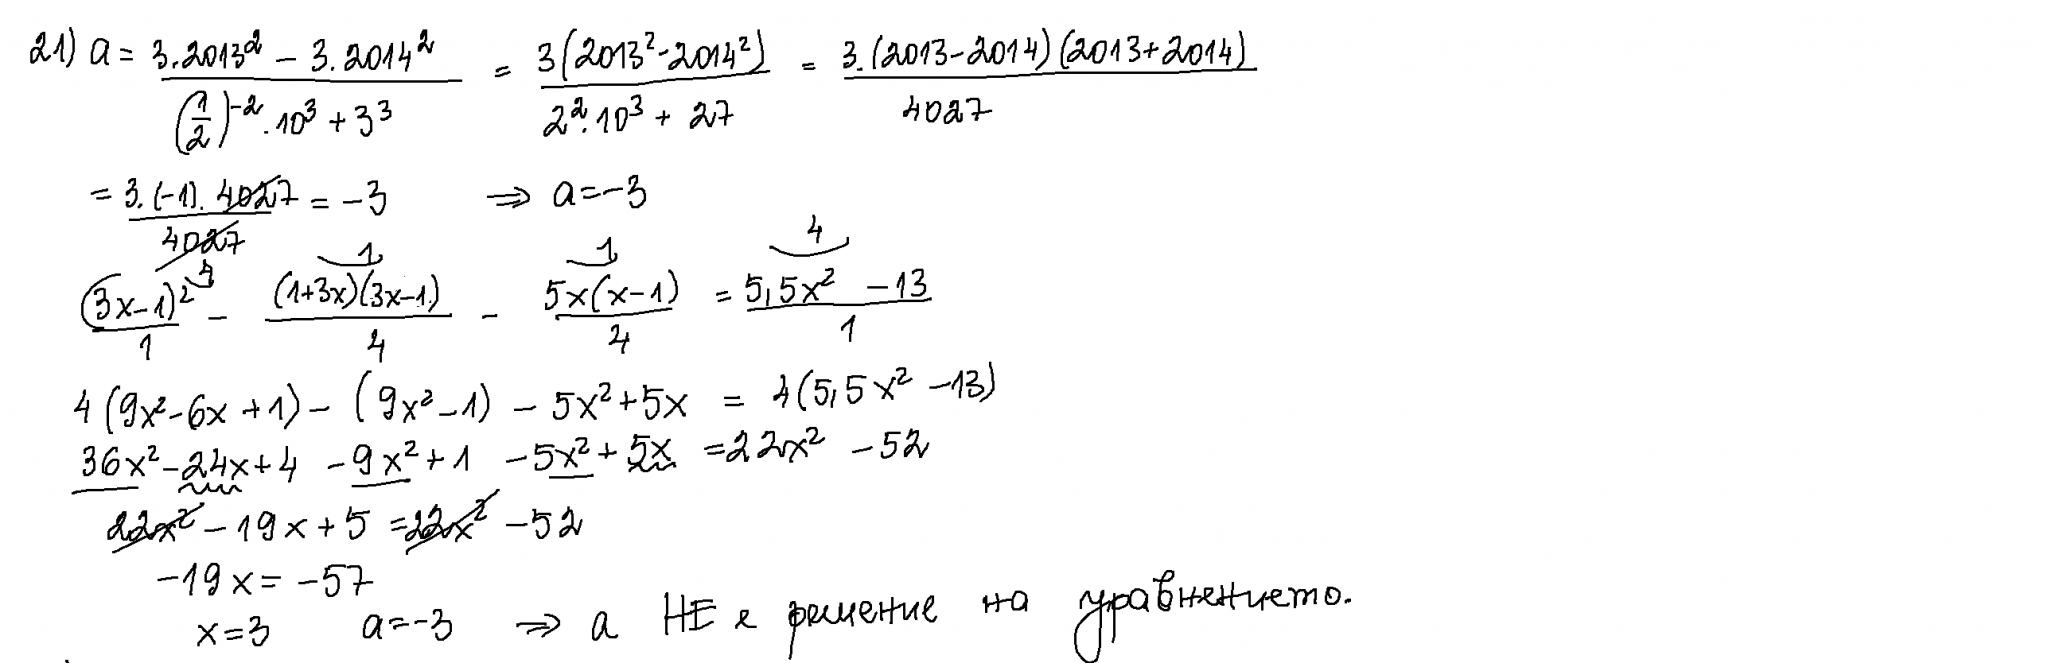 21) a = (3.2013² − 3.2014²)/((1/2)⁻² . 10³ + 3³) = 3(2013² - 2014²)/(2² . 10³ + 27) = 3.(2013-2014)(2013+2014)/4027
= 3.(-1). 4027/4027 = -3 ⇒ a = -3
(3x-1)²/1 − (1+3x)(3x-1)/4 − 5x(x-1)/4 = (5,5x² - 13)/1
4 1 1 4
4(9x²-6x+1) - (9x²-1) - 5x²+5x = 4(5,5x² -13)
36x² -24x+4 -9x²+1 -5x²+5x = 22x² -52
22x² -19x+5 = 22x² -52
-19x = -57
x=3 a=-3 ⇒ a НЕ е решение на уравнението.